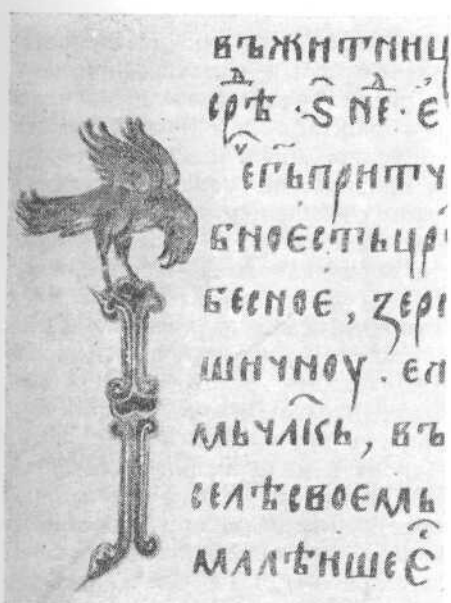 въжитниц
ерⷣѣ · ѕ҃ неⷣ · е҃
егⷡ҇ъпритч
бноестьцр҇
бесное, зер
шичноу . ел
мьчл҃кь, въ
селѣсвоемь
малѣишеѐ